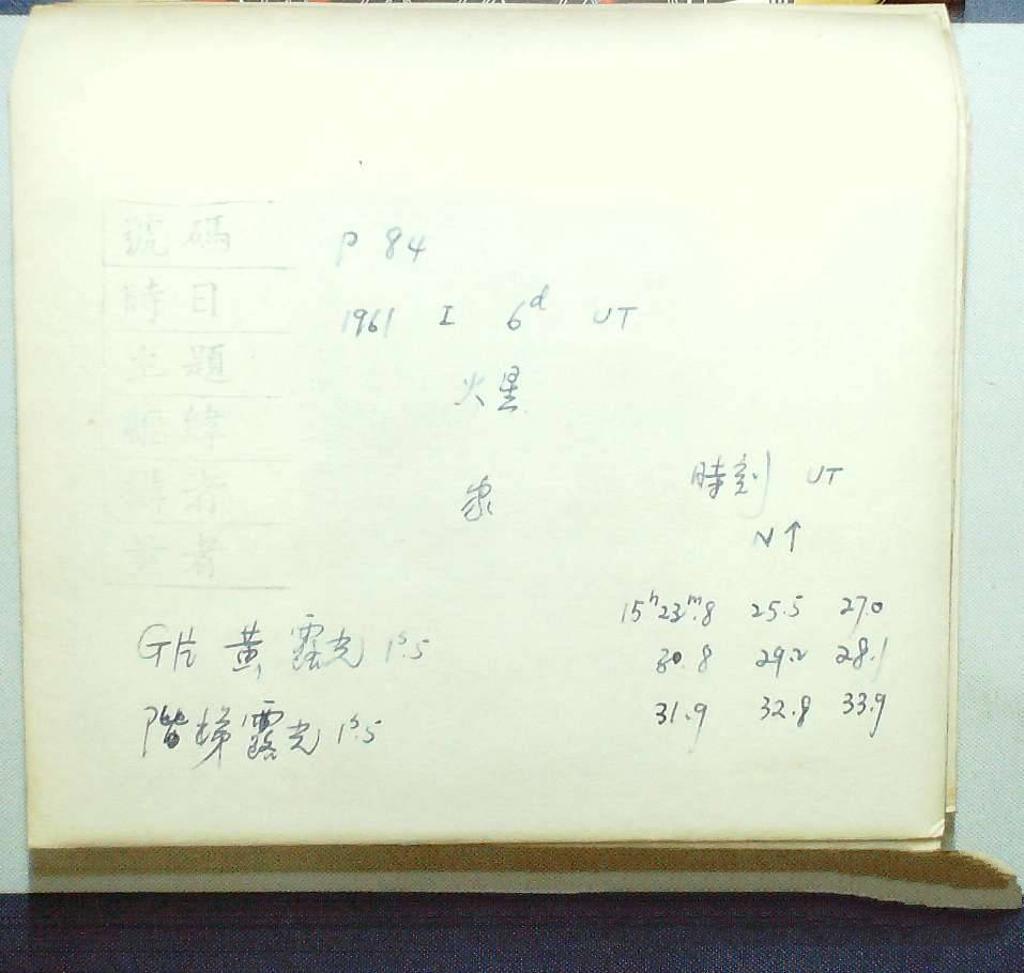 號碼 P 84
時日 1961 I 6ᵈ UT
主題 火星
經緯
時刻 UT
N↑
者
15ʰ23ᵐ.8 25.5 27.0
G片 黃 露光 1ˢ.5
30.8 29.2 28.1
階梯露光 1ˢ.5
31.9 32.8 33.9